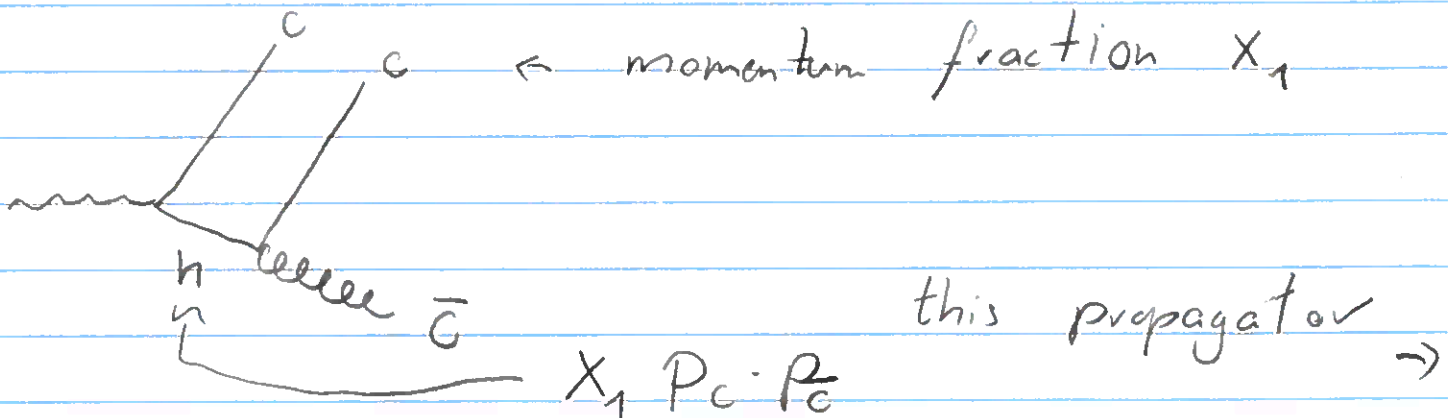 c
c ← momentum fraction x₁
h
c̅
this propagator →
x₁ P_c · P_c̅